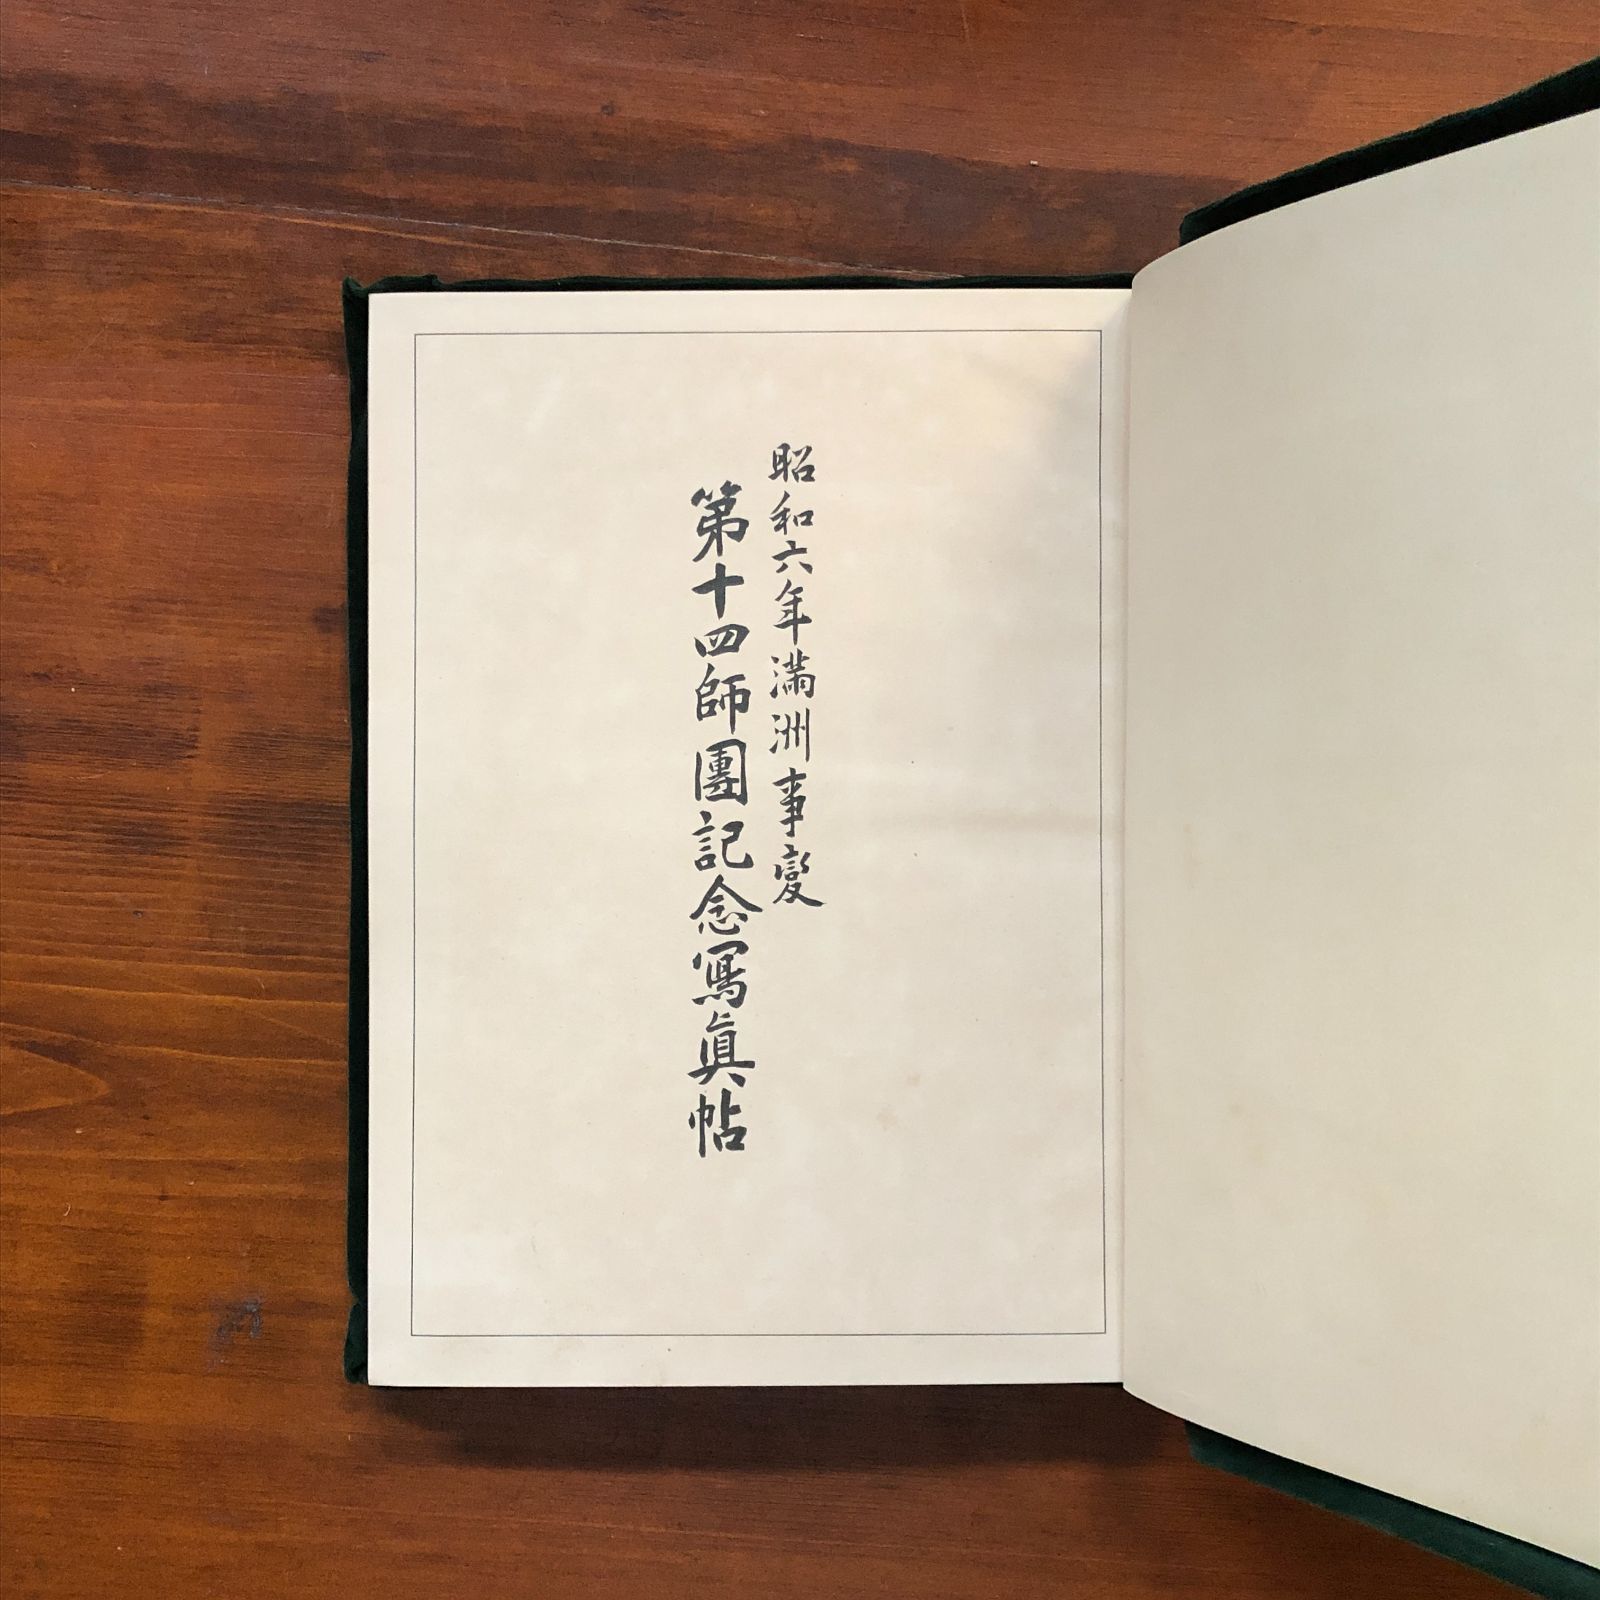 昭和六年滿洲事變
第十四師團記念寫眞帖